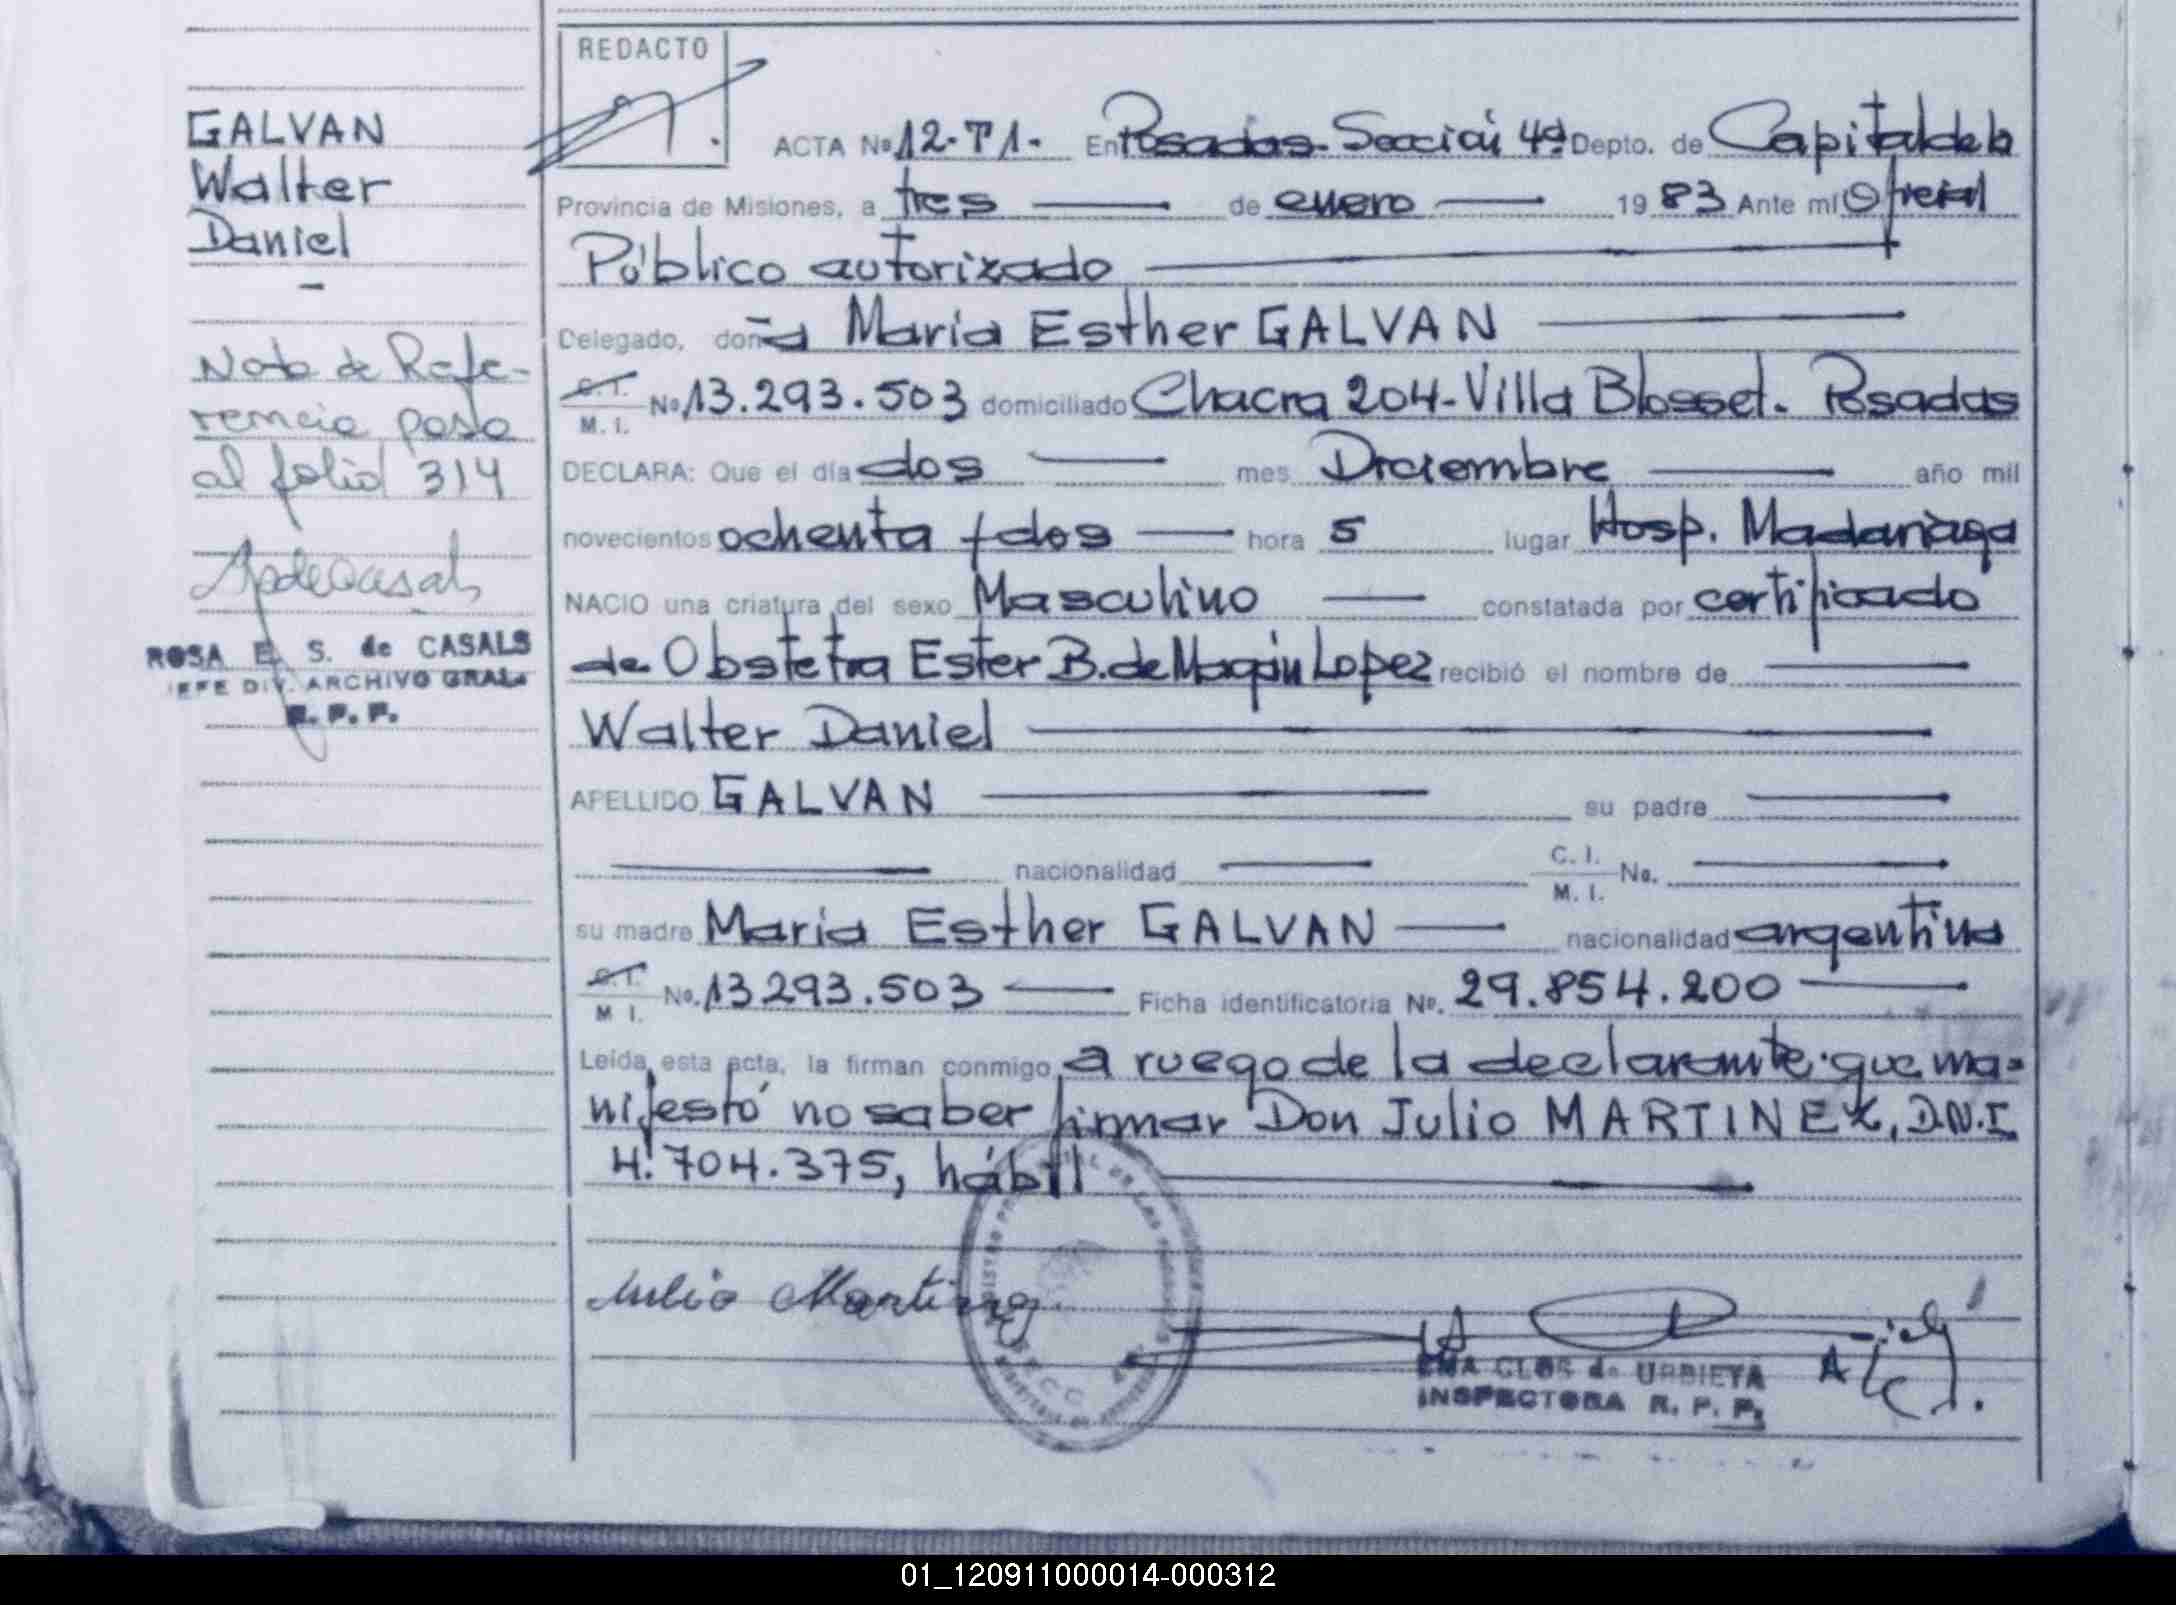 GALVAN
Walter
Daniel
-
Nota de Refe-
rencia pasa
al folio 314
ROSA E. S. de CASALS
JEFE DIV. ARCHIVO GRAL.
R. P. P.
REDACTO
ACTA No 12-T1- En Posadas-Sección 4ª Depto. de Capital de la
Provincia de Misiones, a tres de enero 19 83 Ante mi Oficial
Público autorizado
Delegado, doña Maria Esther GALVAN
C.I. M. I. No 13.293.503 domiciliado Chacra 204-Villa Blosset. Posadas
DECLARA: Que el día dos mes Diciembre año mil
novecientos ochenta y dos hora 5 lugar Hosp. Madariaga
NACIO una criatura del sexo Masculino constatada por certificado
de Obstetra Ester B. de Lopez recibió el nombre de
Walter Daniel
APELLIDO GALVAN su padre
nacionalidad C. I. M. I. No.
su madre Maria Esther GALVAN nacionalidad argentina
C.I. M I. No. 13293.503 Ficha identificatoria No. 29.854.200
Leída esta acta, la firman conmigo a ruego de la declarante que ma-
nifestó no saber firmar Don Julio MARTINEZ, D.N.I.
4.704.375, hábil
Julio Martinez
EMA CLOS de URBIETA
INSPECTORA R. P. P.
01_120911000014-000312